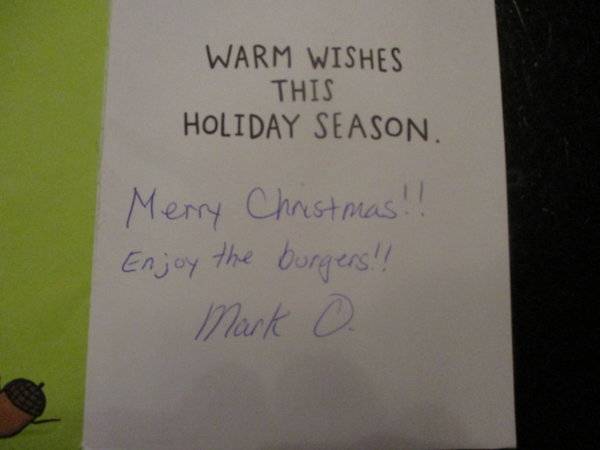 WARM WISHES
THIS
HOLIDAY SEASON.
Merry Christmas!!
Enjoy the burgers!!
Mark O.